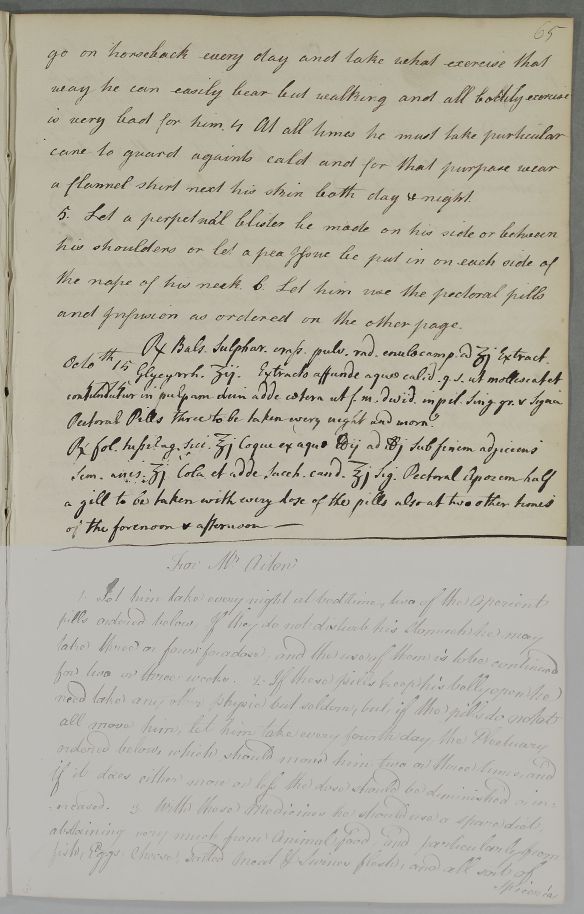 65
go on horseback every day and take what exercise that
way he can easily bear but walking and all bodily exercise
is very bad for him. 4 At all times he must take particular
care to guard againts cald and for that purpose wear
a flannel shirt next his skin both day & night.
5. Let a perpetual blister be made on his side or between
his shoulders or let a pea Issue be put in on each side of
the nape of his neck. 6 Let him use the pectoral pills
and Infusion as ordered on the other page.
Octo 15th 1745 Rx Bals. Sulphur. crass. pulv. rad. enulæ camp. a ʒj Extract.
Glycyrrh. ʒij. Extracto affunde aquæ calid. q. s. ut mollescat et
contundatur in pulpam dein adde cætera ut f. m. divid. in pil. sing. gr. v Signa
Pectoral Pills three to be taken every night and morn.
Rx fol. tussilag. sicc. ʒj Coque ex aquæ ℔ij ad ℔j sub finem adjiciens
Sem. anisi ʒj Cola et adde Sacch. cand. ʒj Sig. Pectoral Apozem half
a gill to be taken with every dose of the pills also at two other times
of the forenoon & afternoon —
For Mr Aiton
1. Let him take every night at bedtime, two of the Aperient
pills ordered below, If they do not disturb his stomach he may
take three or four for a dose, and the use of them is to be continued
for two or three weeks. 2. If these pills keep his belly open he
need take any other physic but seldom, but if the pills do not at
all move him, let him take every fourth day the Electuary
ordered below, which should move him two or three times, and
if it does either more or less the dose should be diminished or in-
-creased. 3 With these Medicines he should use a spare diet,
abstaining very much from Animal food, and particularly from
fish, Eggs, Cheese, salted meat & Swines flesh, and all sort of